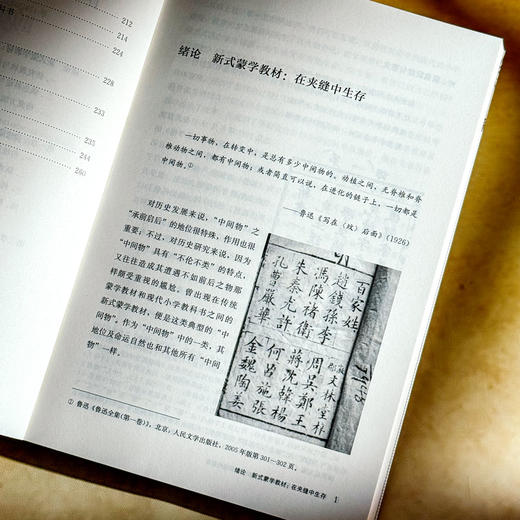 科书
212
214
224
228
233
235
244
260
绪论 新式蒙学教材：在夹缝中生存
一切事物，在转变中，是总有多少中间物的。动植之间，无脊椎和脊
椎动物之间，都有中间物；或者简直可以说，在进化的链子上，一切都是
中间物。①
——鲁迅《写在〈坟〉后面》(1926)
对历史发展来说，“中间物”之
“承前启后”的地位很特殊，作用也很
重要；不过，对历史研究来说，因为
“中间物”具有“不伦不类”的特点，
又往往造成其遭遇不如前后之物那
样颇受重视的尴尬。曾出现在传统
蒙学教材和现代小学教科书之间的
新式蒙学教材，便是这类典型的“中
间物”。作为“中间物”中的一类，其
地位及命运自然也和其他所有“中间
物”一样。
百家姓
趙錢孫李
周吳鄭王
馮陳褚衛
蔣沈韓楊
朱秦尤許
何呂施張
孔曹嚴華
金魏陶姜
① 鲁迅《鲁迅全集(第一卷)》，北京：人民文学出版社，2005年版第301—302页。
绪论 新式蒙学教材：在夹缝中生存 1